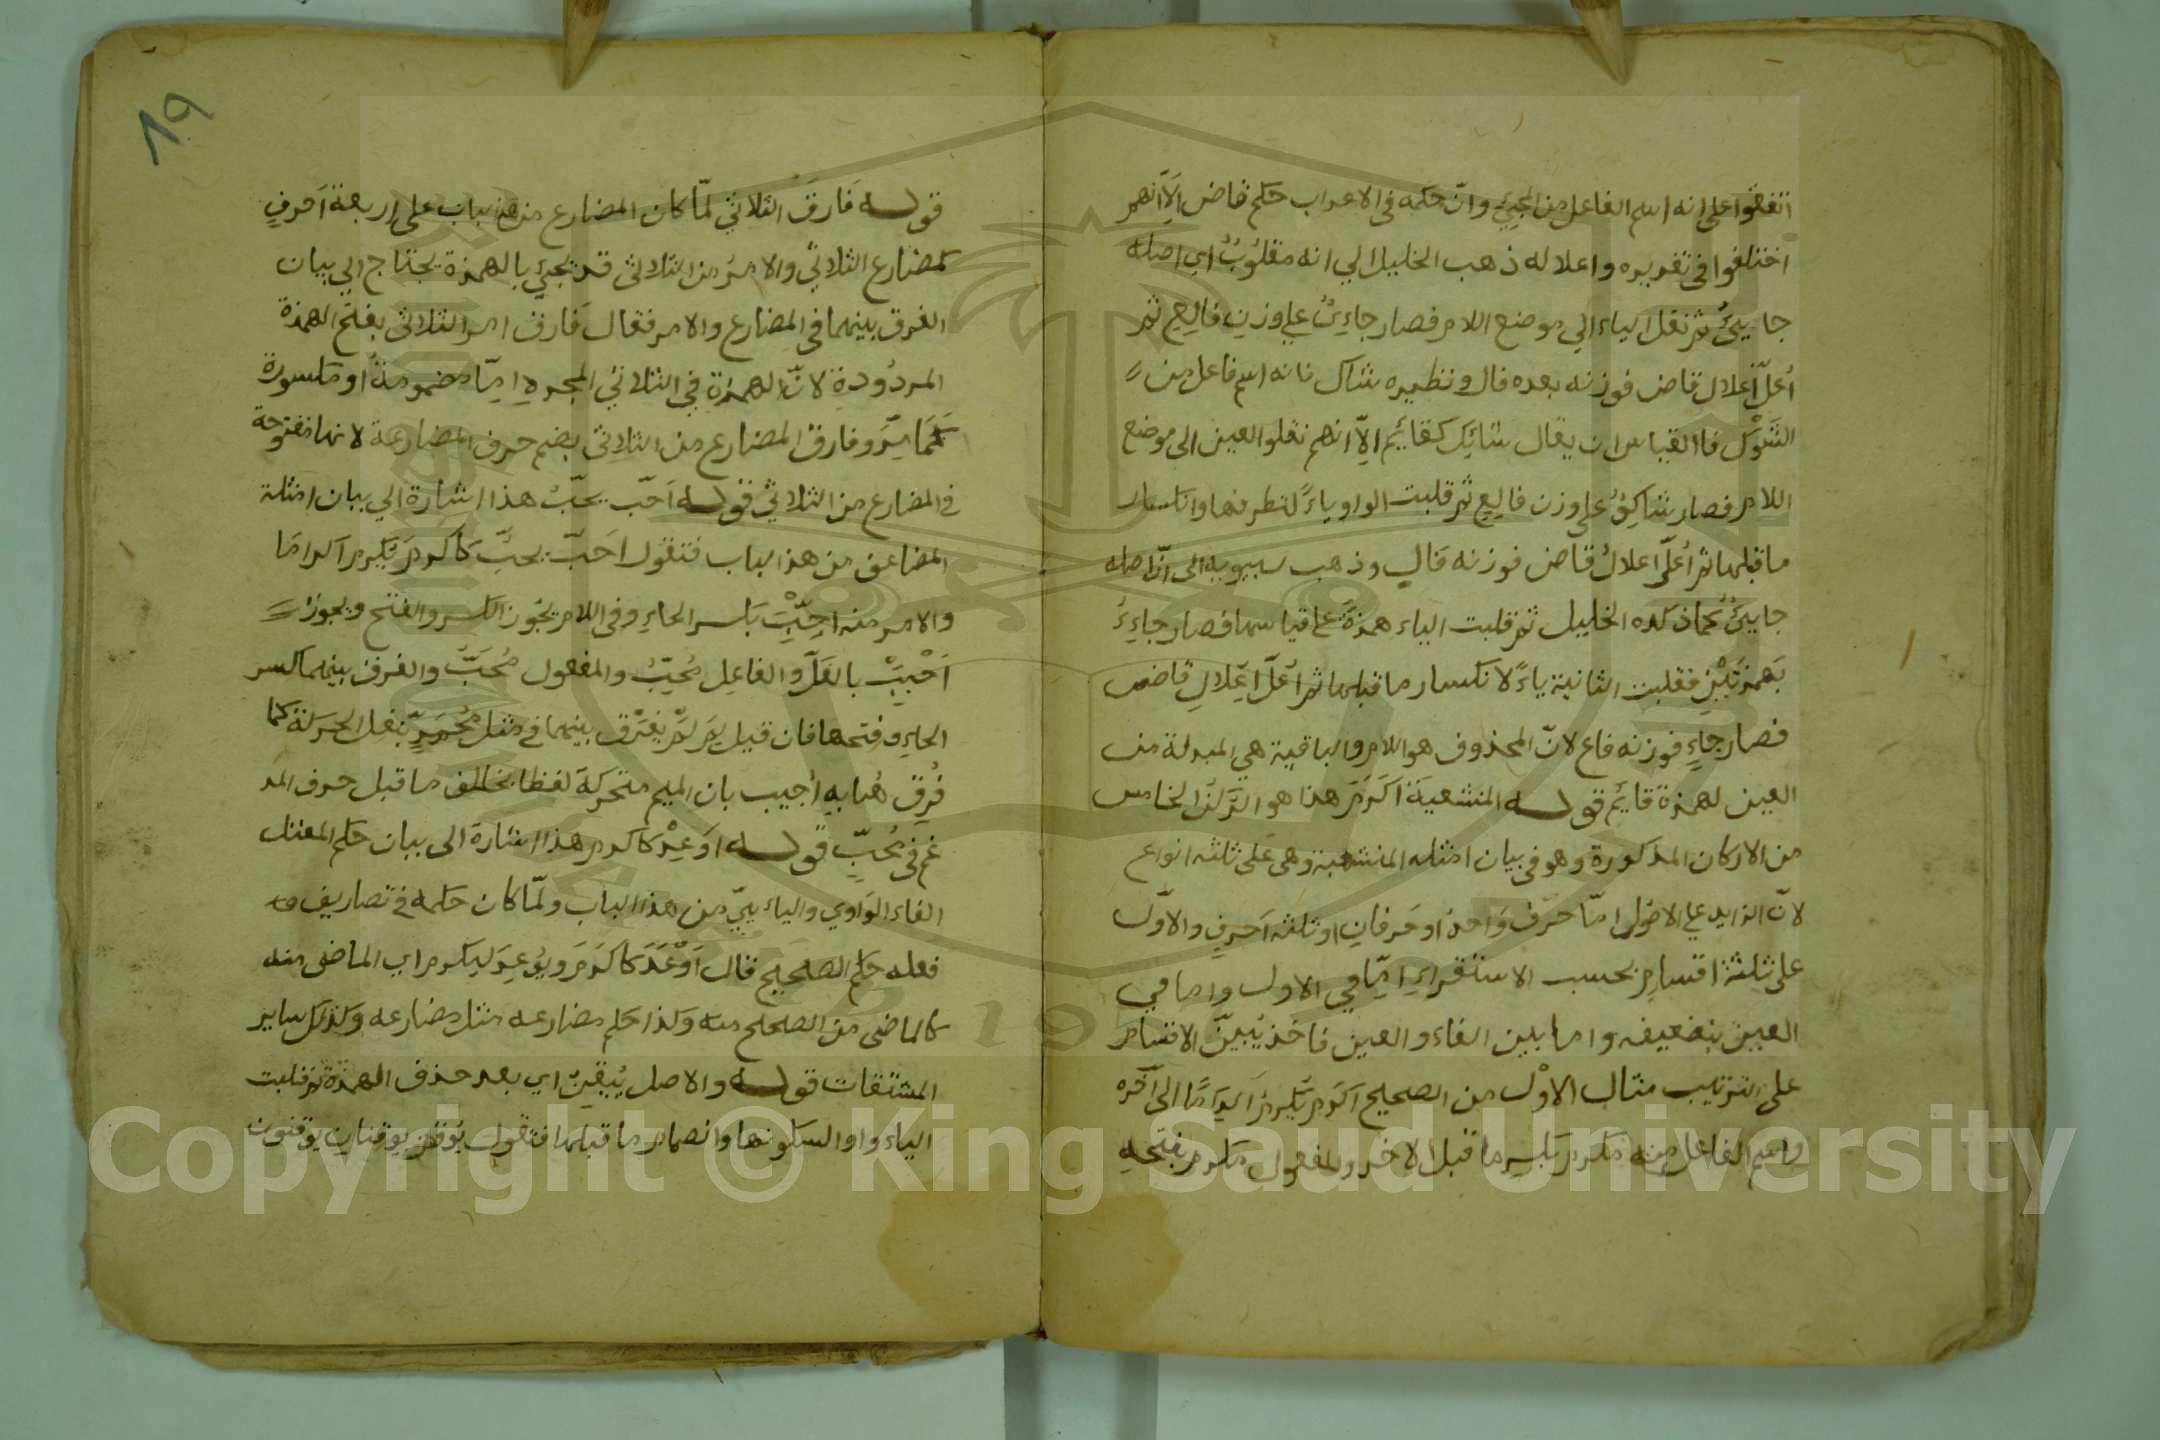 اتفقوا على انه اسم الفاعل من المجيئ وانّ حكمه في الاعراب حكم قاض الاّ انهم
اختلفوا في تقديره واعلاله ذهب الخليل الي انه مقلوبٌ اي اصله
جاييءٌ ثم نقل الياء الي موضع اللام فصار جاءِيٌ علي وزن فالِعٍ ثم
اُعلّ اعلال قاض فوزنه بعده فال ونظيره شاك فانه اسم فاعل من
الشَوْك فاالقياس ان يقال شائِك كقائِم الاّ انهم نقلو العين الى موضع
اللام فصار شاكِوٌ على وزن فالِع ثم قلبت الواو ياءً لتطرفها وانكسار
ما قبلها ثم اُعلّ اعلال قاض فوزنه فالٍ وذهب سيبويه الى انّ اصله
جاييءٌ كما ذكره الخليل ثم قلبت الياء همزةً على قياسها فصار جاءِءٌ
بهمزتَيْنِ فقلبت الثانية ياءً لانكسار ما قبلها ثم اُعلّ اعلالِ قاض
فصار جاءٍ فوزنه فاعٍ لانّ المحذوف هو اللام والباقية هي المبدلة من
العين لهمزة قايم قوله المنشعبة اَكْرَمَ هذا هو الرُكن الخامس
من الاركان المذكورة وهو في بيان امثله المنشعبة وهي على ثلثه انواع
لانّ الزايد علي الاصُول امّا حرف وَاحدٌ او حَرفانِ او ثلثه اَحرفٍ والاوّل
على ثلثة اقسامٍ بحسب الاستقراءِ امّا في الاول واما في
العين بتضعيفه واما بين الفاء والعين فاخذ يُبيّن الاقسام
على الترتيب مثال الاوْل من الصحيح اكرم يُكرم اِكرَامًا الى آخره
واسم الفاعل منه مكرم بكسرِ ما قبل الاخر والمفعول مكرم بفتحهِ
١٩
قوله فَارقَ الثلاثيَ لمّا كان المضارع من هذا باب على اربعة اَحرفٍ
كمضارع الثلاثيّ والامرُ من الثلاثى قد يجيُ بالهمزة يحتاج الي بيان
الفرق بينهما في المضارع والامر فقال فَارق امر الثلاثى بفتح الهمزة
المردُودةِ لانّ الهمزة في الثلاثي المجردِ اِمّا مضمومةٌ او مكسورة
كَمَا مَرَّ وفارق المضارع من الثلاثىّ بضم حرف المضارعة لانها مفتوحة
في المضارع من الثلاثيّ قوله اَحّب يحبّ هذا اشارة الي بيان امثلة
المضاعف من هذا الباب فتقول احَبّ يحبّ كاكرم يُكرم اكراما
والامر منه احِبِّ بكسر الحاءِ وفي اللام يجُوز الكسر والفتح ويجوز
اَحْبِبْ بالفَكّ والفاعِل مُحِبٌّ والمفعول مُحَبٌّ والفرق بينهما كسر
الحاءِ وفتحها فان قيل لِمَ لَمْ يفترق بينهما في مثل مُحْمَرّ بنقل الحركة كما
فُرِق هُنا بهِ اُجيب بان الميم متحركة لفظا بخلاف ما قبل حرف المد
غم في مُحِبّ قوله اَوعَدَ كاكرم هذا اشارة الى بيان حكم المعتل
الفاء الوَاوي والياءييّ من هذا الباب ولمّا كان حكمه في تصاريف
فعله حكم الصحيح قال اَوْعَدَ كاكرَمَ ويُوعِدَ ليكرم اي الماضى منه
كالماضى من الصحيح منه وكذا حكم مضارعه مثل مضارعه وكذلك ساير
المشتقات قوله والاصل يُيْقِنُ اي بعد حذف الهمزة ثم قلبت
الياء واوا لسكونها وانضمام ما قبلها فتقول يُوقن يوقنانِ يوقنون
Copyright © King Saud University